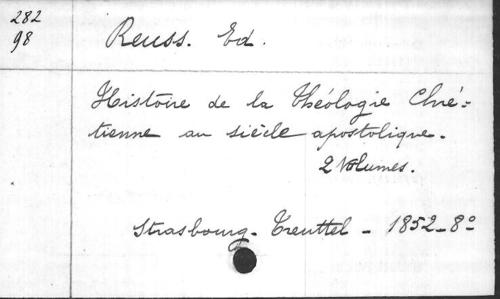 282
98
Reuss. Ed.
Histoire de la Théologie Chré-
tienne au siècle apostolique.
2 Volumes.
Strasbourg - Treuttel - 1852 - 8º